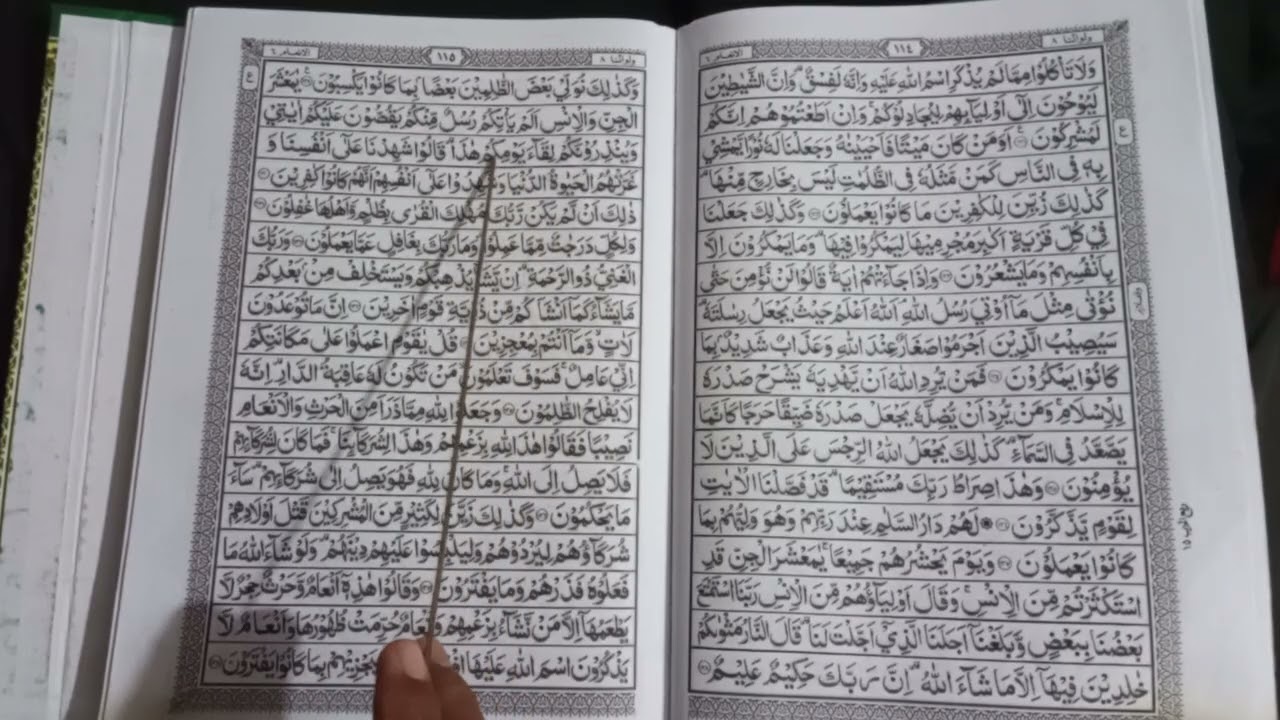 ولواننا ٨ ١١٤ الانعام ٦
وَلَا تَأْكُلُوْا مِمَّا لَمْ يُذْكَرِ اسْمُ اللّٰهِ عَلَيْهِ وَاِنَّهٗ لَفِسْقٌ ؕ وَاِنَّ الشَّيٰطِيْنَ
لَيُوْحُوْنَ اِلٰٓى اَوْلِيٰٓـِٕهِمْ لِيُجَادِلُوْكُمْ ۚ وَاِنْ اَطَعْتُمُوْهُمْ اِنَّكُمْ
لَمُشْرِكُوْنَ ۝ اَوَمَنْ كَانَ مَيْتًا فَاَحْيَيْنٰهُ وَجَعَلْنَا لَهٗ نُوْرًا يَّمْشِيْ
بِهٖ فِى النَّاسِ كَمَنْ مَّثَلُهٗ فِى الظُّلُمٰتِ لَيْسَ بِخَارِجٍ مِّنْهَا ؕ
كَذٰلِكَ زُيِّنَ لِلْكٰفِرِيْنَ مَا كَانُوْا يَعْمَلُوْنَ ۝ وَكَذٰلِكَ جَعَلْنَا
فِيْ كُلِّ قَرْيَةٍ اَكٰبِرَ مُجْرِمِيْهَا لِيَمْكُرُوْا فِيْهَا ؕ وَمَا يَمْكُرُوْنَ اِلَّا
بِاَنْفُسِهِمْ وَمَا يَشْعُرُوْنَ ۝ وَاِذَا جَآءَتْهُمْ اٰيَةٌ قَالُوْا لَنْ نُّؤْمِنَ حَتّٰى
نُؤْتٰى مِثْلَ مَآ اُوْتِيَ رُسُلُ اللّٰهِ ؔۘ اَللّٰهُ اَعْلَمُ حَيْثُ يَجْعَلُ رِسَالَتَهٗ ؕ
سَيُصِيْبُ الَّذِيْنَ اَجْرَمُوْا صَغَارٌ عِنْدَ اللّٰهِ وَعَذَابٌ شَدِيْدٌۢ بِمَا
كَانُوْا يَمْكُرُوْنَ ۝ فَمَنْ يُّرِدِ اللّٰهُ اَنْ يَّهْدِيَهٗ يَشْرَحْ صَدْرَهٗ
لِلْاِسْلَامِ ۚ وَمَنْ يُّرِدْ اَنْ يُّضِلَّهٗ يَجْعَلْ صَدْرَهٗ ضَيِّقًا حَرَجًا كَاَنَّمَا
يَصَّعَّدُ فِى السَّمَآءِ ؕ كَذٰلِكَ يَجْعَلُ اللّٰهُ الرِّجْسَ عَلَى الَّذِيْنَ لَا
يُؤْمِنُوْنَ ۝ وَهٰذَا صِرَاطُ رَبِّكَ مُسْتَقِيْمًا ؕ قَدْ فَصَّلْنَا الْاٰيٰتِ
لِقَوْمٍ يَّذَّكَّرُوْنَ ۝ لَهُمْ دَارُ السَّلٰمِ عِنْدَ رَبِّهِمْ وَهُوَ وَلِيُّهُمْ بِمَا
كَانُوْا يَعْمَلُوْنَ ۝ وَيَوْمَ يَحْشُرُهُمْ جَمِيْعًا ۚ يٰمَعْشَرَ الْجِنِّ قَدِ
اسْتَكْثَرْتُمْ مِّنَ الْاِنْسِ ۚ وَقَالَ اَوْلِيٰٓـؤُهُمْ مِّنَ الْاِنْسِ رَبَّنَا اسْتَمْتَعَ
بَعْضُنَا بِبَعْضٍ وَّبَلَغْنَآ اَجَلَنَا الَّذِيْٓ اَجَّلْتَ لَنَا ؕ قَالَ النَّارُ مَثْوٰىكُمْ
خٰلِدِيْنَ فِيْهَآ اِلَّا مَا شَآءَ اللّٰهُ ؕ اِنَّ رَبَّكَ حَكِيْمٌ عَلِيْمٌ ۝
ولواننا ٨ ١١٥ الانعام ٦
وَكَذٰلِكَ نُوَلِّيْ بَعْضَ الظّٰلِمِيْنَ بَعْضًۢا بِمَا كَانُوْا يَكْسِبُوْنَ ۝ يٰمَعْشَرَ
الْجِنِّ وَالْاِنْسِ اَلَمْ يَاْتِكُمْ رُسُلٌ مِّنْكُمْ يَقُصُّوْنَ عَلَيْكُمْ اٰيٰتِيْ
وَيُنْذِرُوْنَكُمْ لِقَآءَ يَوْمِكُمْ هٰذَا ؕ قَالُوْا شَهِدْنَا عَلٰٓى اَنْفُسِنَا وَ
غَرَّتْهُمُ الْحَيٰوةُ الدُّنْيَا وَشَهِدُوْا عَلٰٓى اَنْفُسِهِمْ اَنَّهُمْ كَانُوْا كٰفِرِيْنَ ۝
ذٰلِكَ اَنْ لَّمْ يَكُنْ رَّبُّكَ مُهْلِكَ الْقُرٰى بِظُلْمٍ وَّاَهْلُهَا غٰفِلُوْنَ ۝
وَلِكُلٍّ دَرَجٰتٌ مِّمَّا عَمِلُوْا ؕ وَمَا رَبُّكَ بِغَافِلٍ عَمَّا يَعْمَلُوْنَ ۝ وَرَبُّكَ
الْغَنِيُّ ذُو الرَّحْمَةِ ؕ اِنْ يَّشَاْ يُذْهِبْكُمْ وَيَسْتَخْلِفْ مِنْۢ بَعْدِكُمْ
مَّا يَشَآءُ كَمَآ اَنْشَاَكُمْ مِّنْ ذُرِّيَّةِ قَوْمٍ اٰخَرِيْنَ ۝ اِنَّ مَا تُوْعَدُوْنَ
لَاٰتٍ ۙ وَّمَآ اَنْتُمْ بِمُعْجِزِيْنَ ۝ قُلْ يٰقَوْمِ اعْمَلُوْا عَلٰى مَكَانَتِكُمْ
اِنِّيْ عَامِلٌ ۚ فَسَوْفَ تَعْلَمُوْنَ ۙ مَنْ تَكُوْنُ لَهٗ عَاقِبَةُ الدَّارِ ؕ اِنَّهٗ
لَا يُفْلِحُ الظّٰلِمُوْنَ ۝ وَجَعَلُوْا لِلّٰهِ مِمَّا ذَرَاَ مِنَ الْحَرْثِ وَالْاَنْعَامِ
نَصِيْبًا فَقَالُوْا هٰذَا لِلّٰهِ بِزَعْمِهِمْ وَهٰذَا لِشُرَكَآئِنَا ۚ فَمَا كَانَ لِشُرَكَآئِهِمْ
فَلَا يَصِلُ اِلَى اللّٰهِ ۚ وَمَا كَانَ لِلّٰهِ فَهُوَ يَصِلُ اِلٰى شُرَكَآئِهِمْ ؕ سَآءَ
مَا يَحْكُمُوْنَ ۝ وَكَذٰلِكَ زَيَّنَ لِكَثِيْرٍ مِّنَ الْمُشْرِكِيْنَ قَتْلَ اَوْلَادِهِمْ
شُرَكَآؤُهُمْ لِيُرْدُوْهُمْ وَلِيَلْبِسُوْا عَلَيْهِمْ دِيْنَهُمْ ؕ وَلَوْ شَآءَ اللّٰهُ مَا
فَعَلُوْهُ فَذَرْهُمْ وَمَا يَفْتَرُوْنَ ۝ وَقَالُوْا هٰذِهٖٓ اَنْعَامٌ وَّحَرْثٌ حِجْرٌ لَّا
يَطْعَمُهَآ اِلَّا مَنْ نَّشَآءُ بِزَعْمِهِمْ وَاَنْعَامٌ حُرِّمَتْ ظُهُوْرُهَا وَاَنْعَامٌ لَّا
يَذْكُرُوْنَ اسْمَ اللّٰهِ عَلَيْهَا بِمَا كَانُوْا يَفْتَرُوْنَ ۝